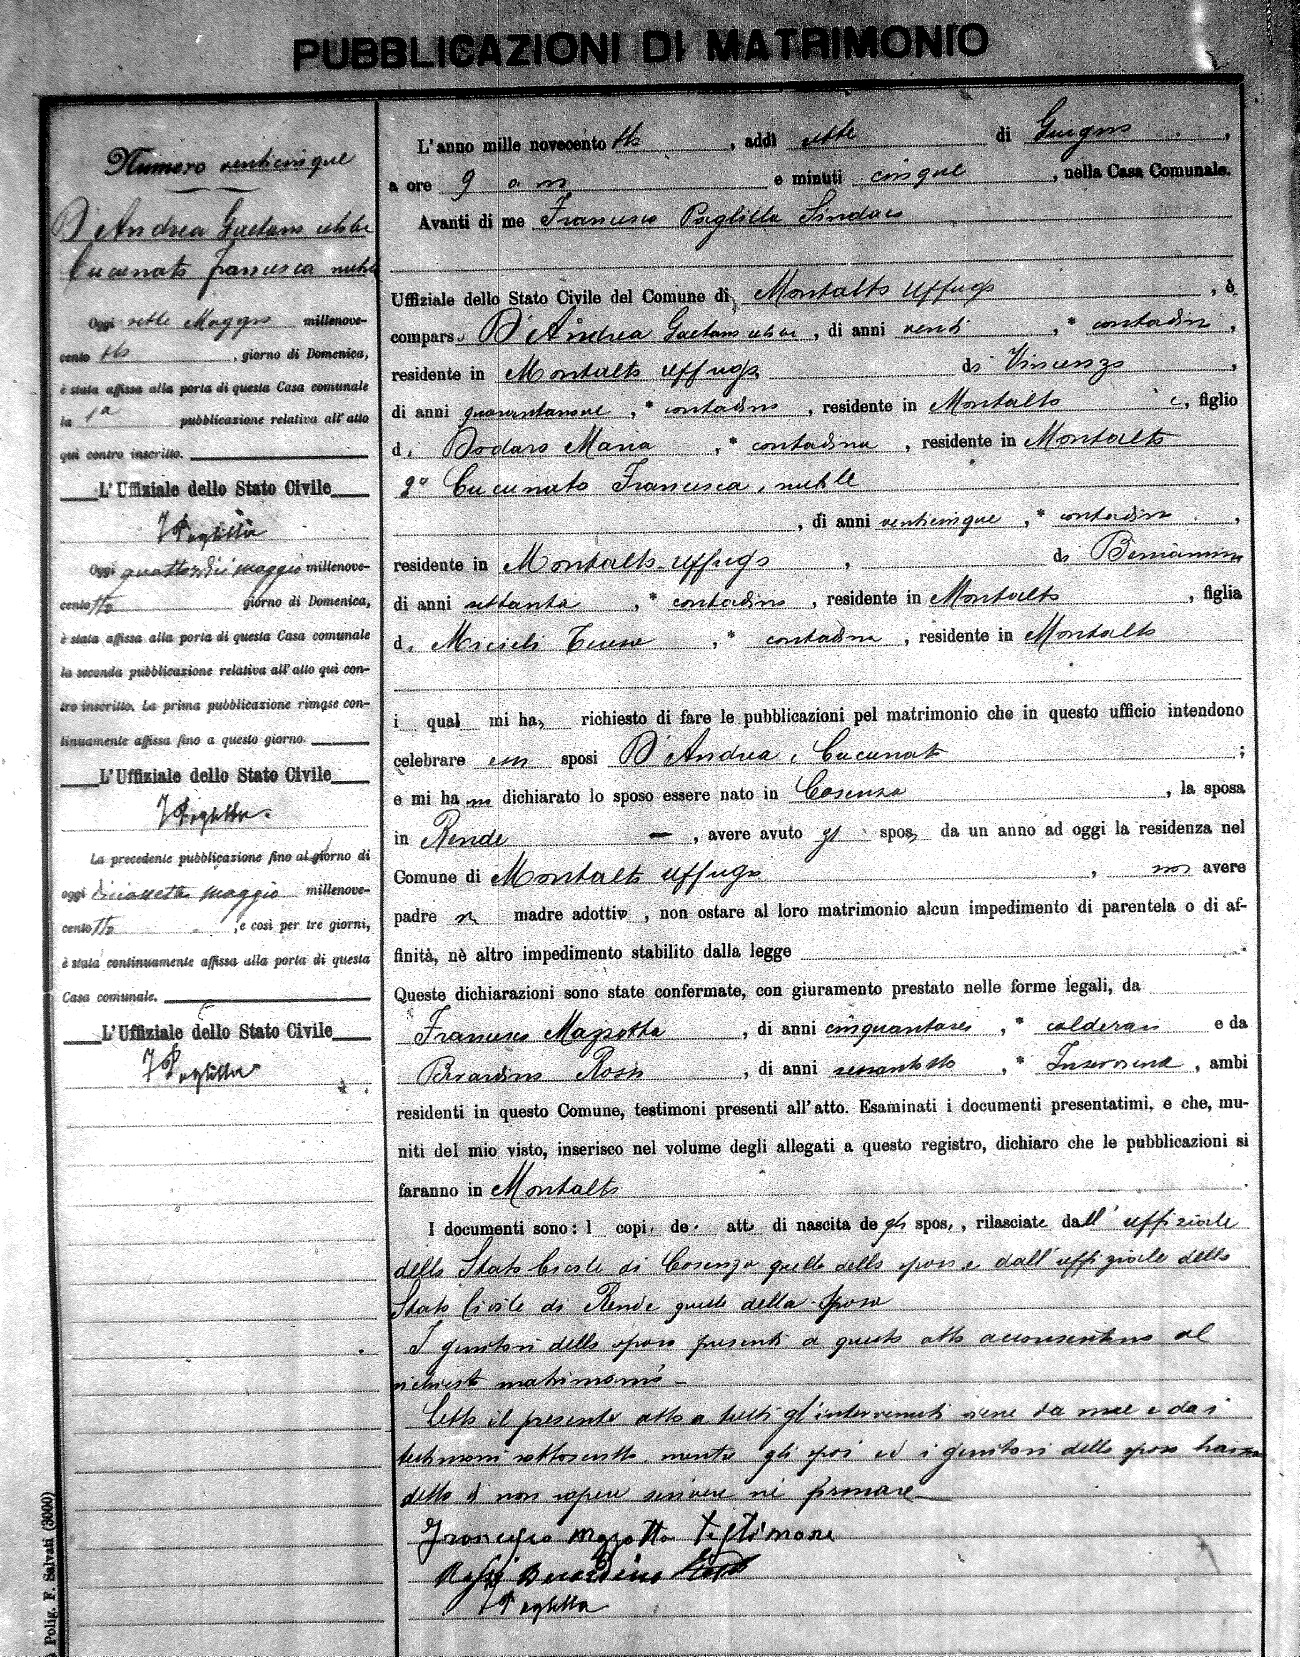 PUBBLICAZIONI DI MATRIMONIO
Numero venticinque
D'Andrea Gaetano celibe
Cucunato Francesca nubile
Oggi sette Maggio millenove-
cento otto, giorno di Domenica,
è stata affissa alla porta di questa Casa comunale
la 1a pubblicazione relativa all'atto
qui contro inscritto.
L'Uffiziale dello Stato Civile
F Paglilla
Oggi quattordici maggio millenove-
cento otto giorno di Domenica,
è stata affissa alla porta di questa Casa comunale
la seconda pubblicazione relativa all'atto qui con-
tro inscritto. La prima pubblicazione rimase con-
tinuamente affissa fino a questo giorno.
L'Uffiziale dello Stato Civile
F Paglilla
La precedente pubblicazione fino al giorno di
oggi diciassette maggio millenove-
cento otto, e così per tre giorni,
è stata continuamente affissa alla porta di questa
Casa comunale.
L'Uffiziale dello Stato Civile
F Paglilla
Polig. F. Salvati (3000)
L'anno mille novecento otto, addì sette di Giugno,
a ore 9 a m e minuti cinque, nella Casa Comunale.
Avanti di me Francesco Paglilla Sindaco
Uffiziale dello Stato Civile del Comune di Montalto Uffugo, è
compars D'Andrea Gaetano celibe, di anni venti, * contadino,
residente in Montalto Uffugo di Vincenzo,
di anni quarantanove, * contadino, residente in Montalto e, figlio
di Dodaro Maria, * contadina, residente in Montalto
2° Cucunato Francesca, nubile
, di anni venticinque, * contadina,
residente in Montalto Uffugo, di Beniamino
di anni settanta, * contadino, residente in Montalto, figlia
di Micieli Teresa, * contadina, residente in Montalto
i qual mi ha richiesto di fare le pubblicazioni pel matrimonio che in questo ufficio intendono
celebrare essi sposi D'Andrea e Cucunato;
e mi ha nno dichiarato lo sposo essere nato in Cosenza, la sposa
in Rende —, avere avuto gli sposi da un anno ad oggi la residenza nel
Comune di Montalto Uffugo, non avere
padre nè madre adottivo, non ostare al loro matrimonio alcun impedimento di parentela o di af-
finità, nè altro impedimento stabilito dalla legge
Queste dichiarazioni sono state confermate, con giuramento prestato nelle forme legali, da
Francesco Mazzotta, di anni cinquantasei, * calderaio e da
Berardino Rossi, di anni sessantotto, * Inserviente, ambi
residenti in questo Comune, testimoni presenti all'atto. Esaminati i documenti presentatimi, e che, mu-
niti del mio visto, inserisco nel volume degli allegati a questo registro, dichiaro che le pubblicazioni si
faranno in Montalto
I documenti sono: l copi de att di nascita de gli sposi, rilasciate dall'uffiziale
dello Stato Civile di Cosenza quella dello sposo e dall'uffiziale dello
Stato Civile di Rende quella della sposa
I genitori dello sposo presenti a questo atto acconsentono al
richiesto matrimonio —
Letto il presente atto a tutti gl'intervenuti viene da me e da i
testimoni sottoscritto mentre gli sposi ed i genitori dello sposo hanno
detto di non sapere scrivere nè firmare
Francesco Mazzotta testimone
Rossi Berardino
F Paglilla